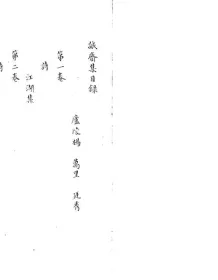 誠齋集目錄
廬陵楊 萬里 廷秀
第一卷
詩
江湖集
第二卷
詩